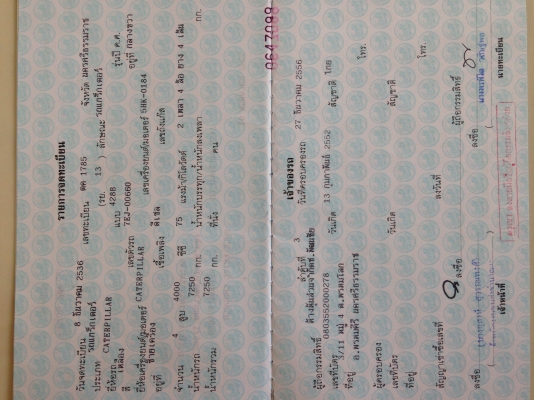 รายการจดทะเบียน
วันจดทะเบียน 8 ธันวาคม 2536 เลขทะเบียน ตค 1785 จังหวัด นครศรีธรรมราช
ประเภท รถแทรกเตอร์ (รย. 13 ) ลักษณะ รถแทรกเตอร์
ยี่ห้อรถ CATERPILLAR แบบ 428B รุ่นปี ค.ศ.
สี เหลือง เลขตัวรถ 7EJ-00660 อยู่ที่ กลางขวา
ยี่ห้อเครื่องยนต์ CATERPILLAR เลขเครื่องยนต์ 5HK-0184
อยู่ที่ ซ้ายเครื่อง เชื้อเพลิง ดีเซล เลขถังแก๊ส
จำนวน 4 สูบ 4000 ซีซี 75 แรงม้า 2 เพลา 4 ล้อ ยาง 4 เส้น
น้ำหนักรถ 7250 กก. น้ำหนักบรรทุก/น้ำหนักลงเพลา กก.
น้ำหนักรวม 7250 กก. ที่นั่ง คน
0647098
เจ้าของรถ
ลำดับที่ 3 วันที่ครอบครองรถ 27 ธันวาคม 2556
ผู้ถือกรรมสิทธิ์ ห้างหุ้นส่วนจำกัด
เลขที่บัตร 0803552000278 วันเกิด 13 กุมภาพันธ์ 2552 สัญชาติ ไทย
ที่อยู่ 3/11 หมู่ 4 ต.พรหมโลก
อ.พรหมคีรี นครศรีธรรมราช โทร.
ผู้ครอบครอง
เลขที่บัตร วันเกิด สัญชาติ
ที่อยู่ โทร.
สัญญาเช่าซื้อเลขที่ ลงวันที่
ลงชื่อ ผู้ถือกรรมสิทธิ์
ลงชื่อ เจ้าหน้าที่ ลงชื่อ นายทะเบียน